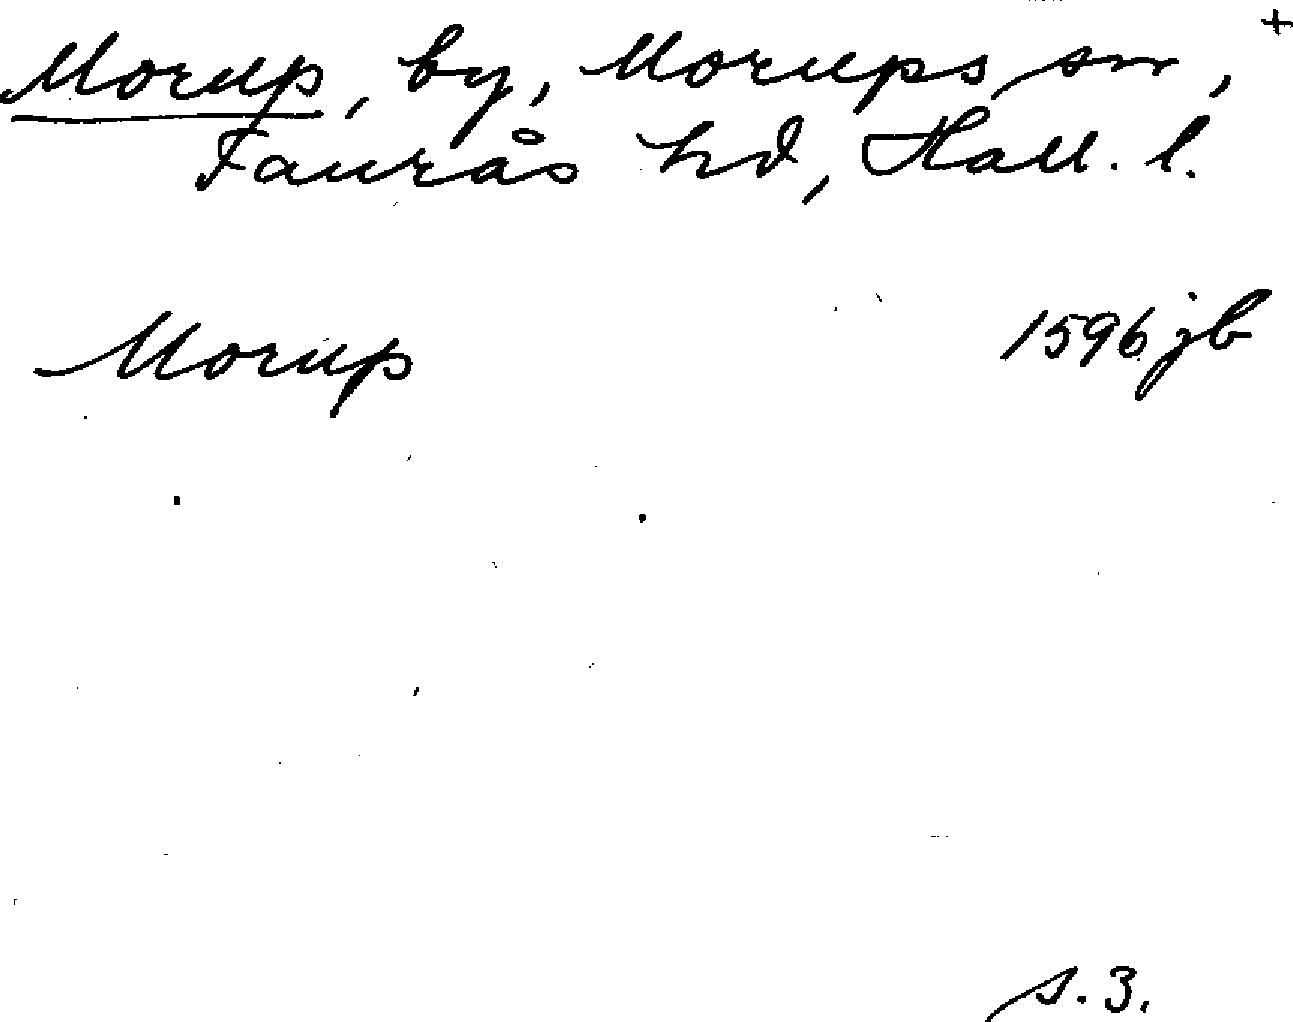 +
Morup, by, Morups sn,
Faurås hd, Hall. l.
Morup 1596 jb
s. 3.